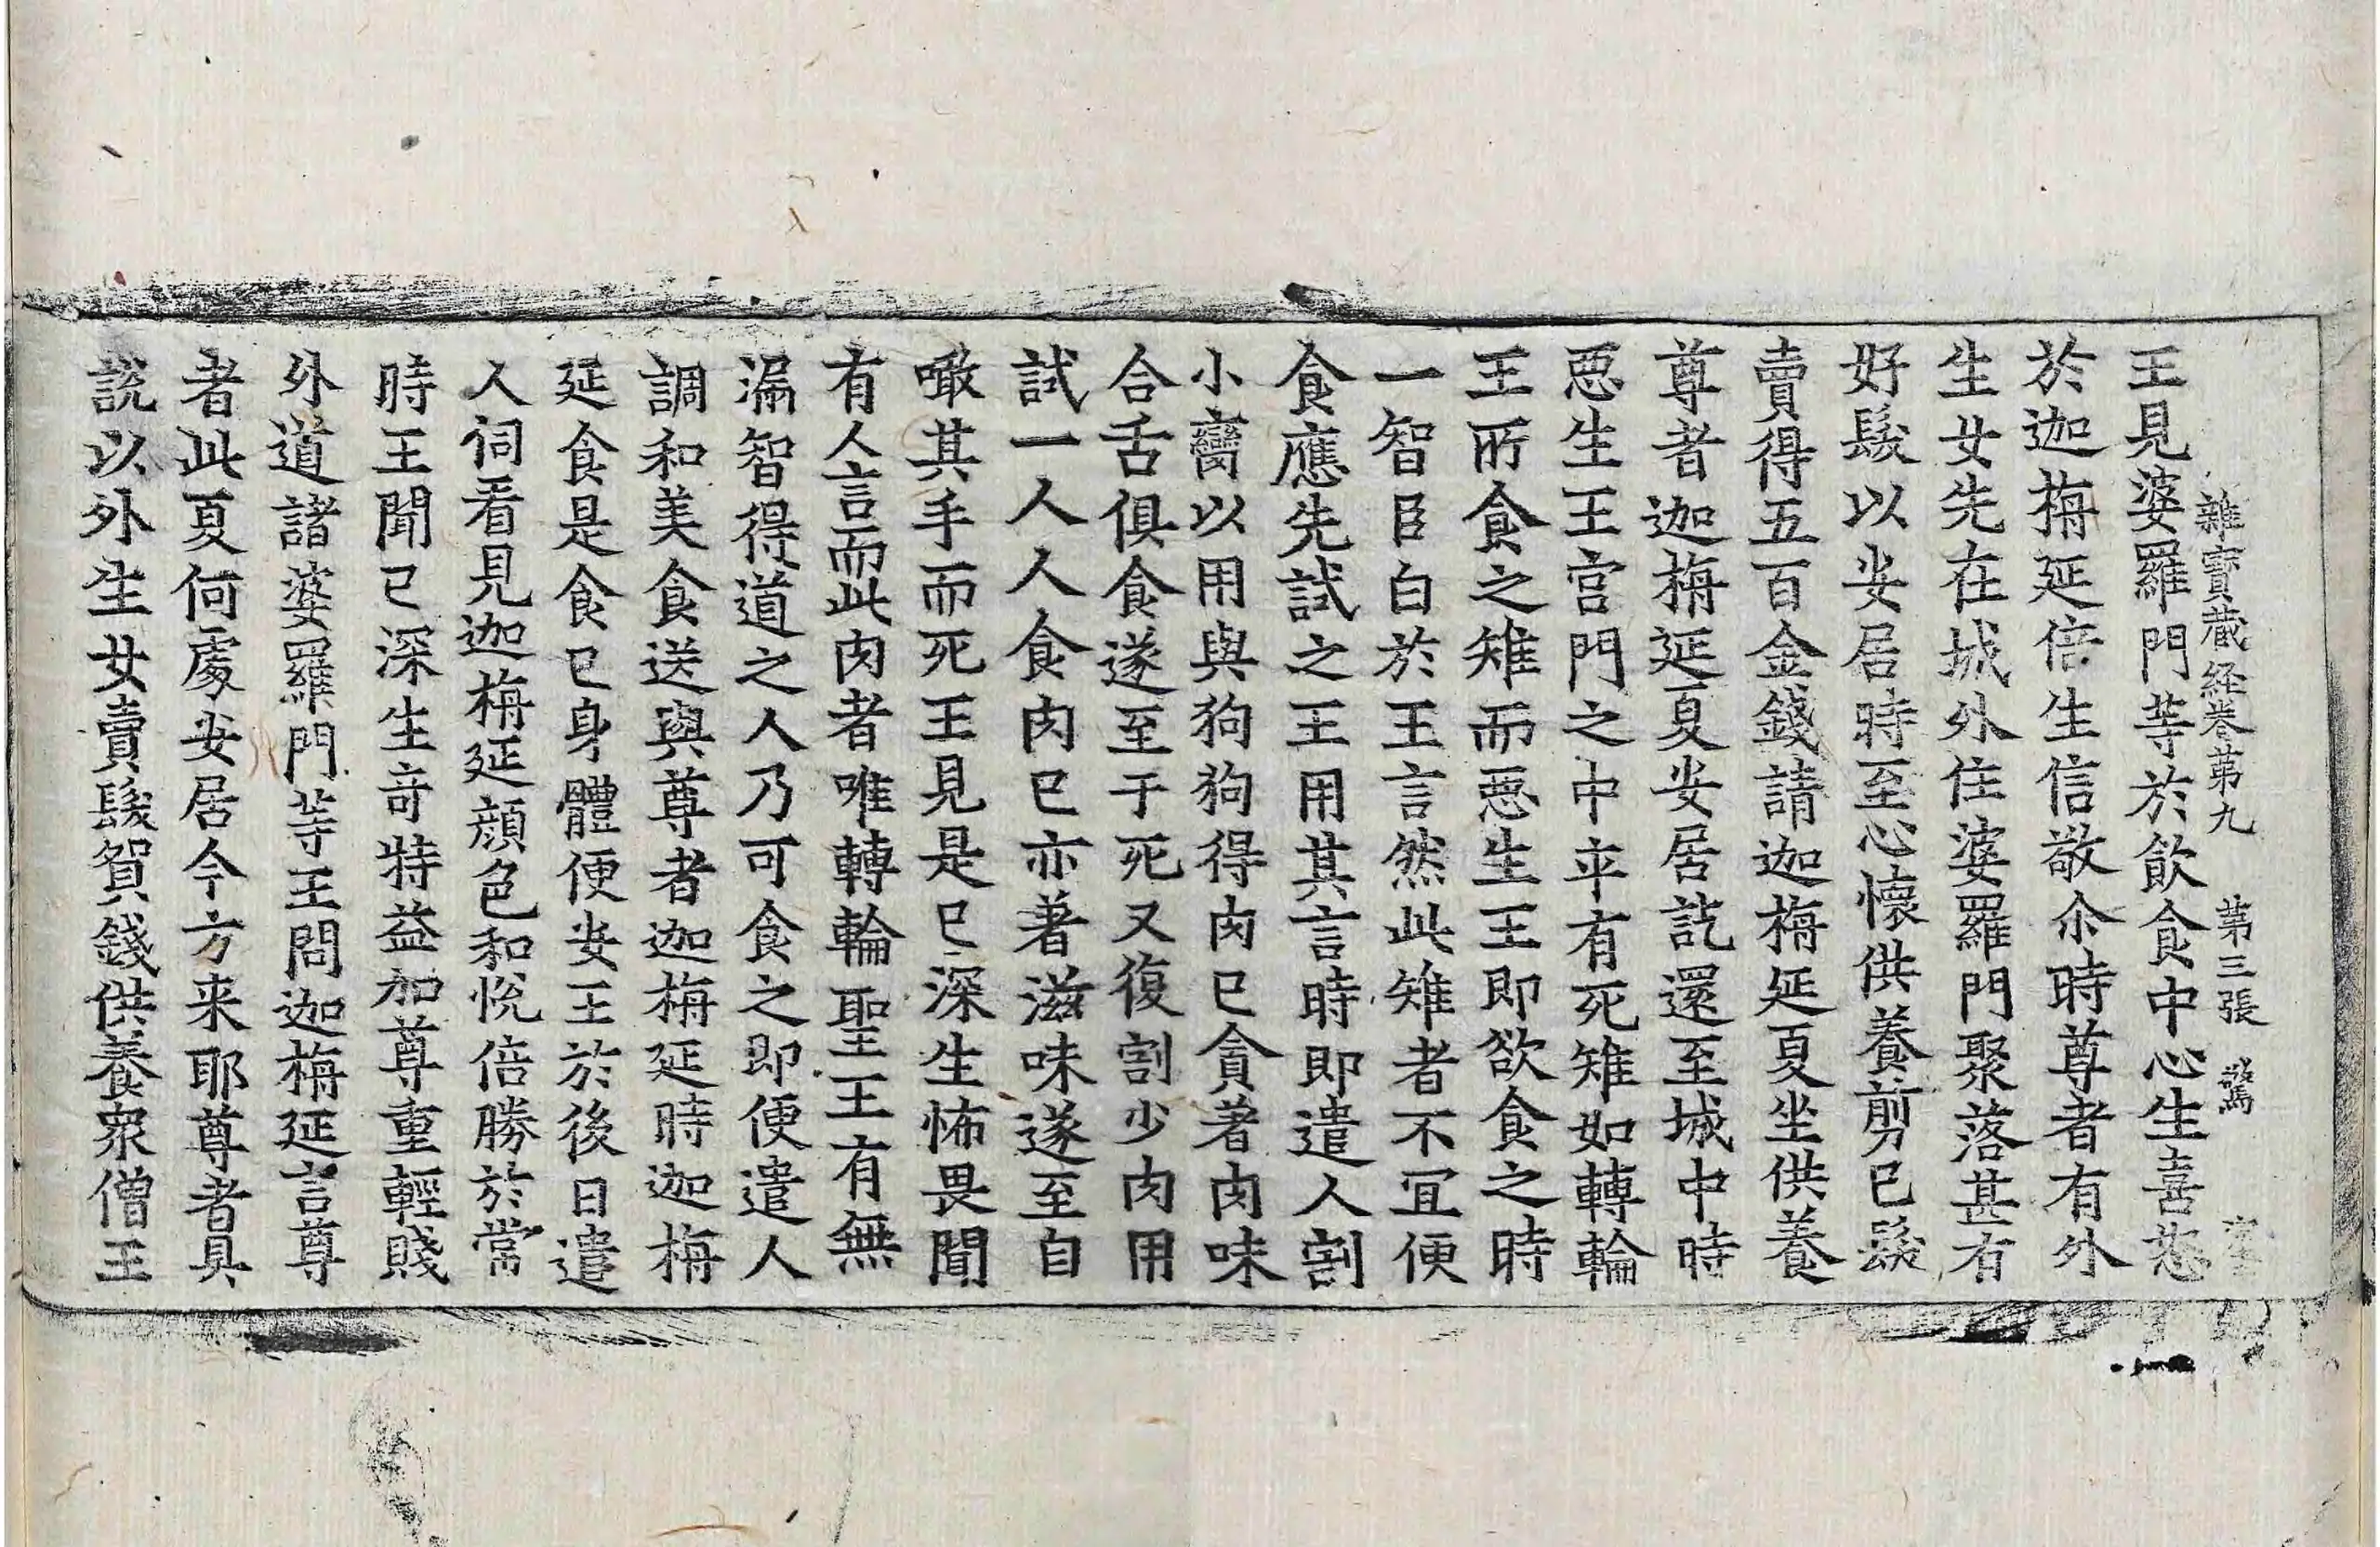 雜寶蔵経卷苐九　苐三張　驚
王見婆羅門等於飲食中心生喜怒
於迦栴延倍生信敬尒時尊者有外
生女先在城外住婆羅門聚落甚有
好髮以安居時至心懷供養剪已髮
賣得五百金錢請迦栴延夏坐供養
尊者迦栴延夏安居訖還至城中時
惡生王宫門之中卒有死雉如轉輪
王所食之雉而惡生王即欲食之時
一智臣白於王言然此雉者不冝便
食應先試之王用其言時即遣人割
小臠以用與狗狗得肉已貪著肉味
合舌俱食遂至于死又復割少肉用
試一人人食肉已亦著滋味遂至自
噉其手而死王見是已深生怖畏聞
有人言而此肉者唯轉輪聖王有無
漏智得道之人乃可食之即便遣人
調和美食送與尊者迦栴延時迦栴
延食是食已身體便安王於後日遣
人伺看見迦栴延顔色和恱倍勝於常
時王聞已深生竒特益加尊重輕賤
外道諸婆羅門等王問迦栴延言尊
者此夏何處安居今方来耶尊者具
說以外生女賣髮貿錢供養眾僧王